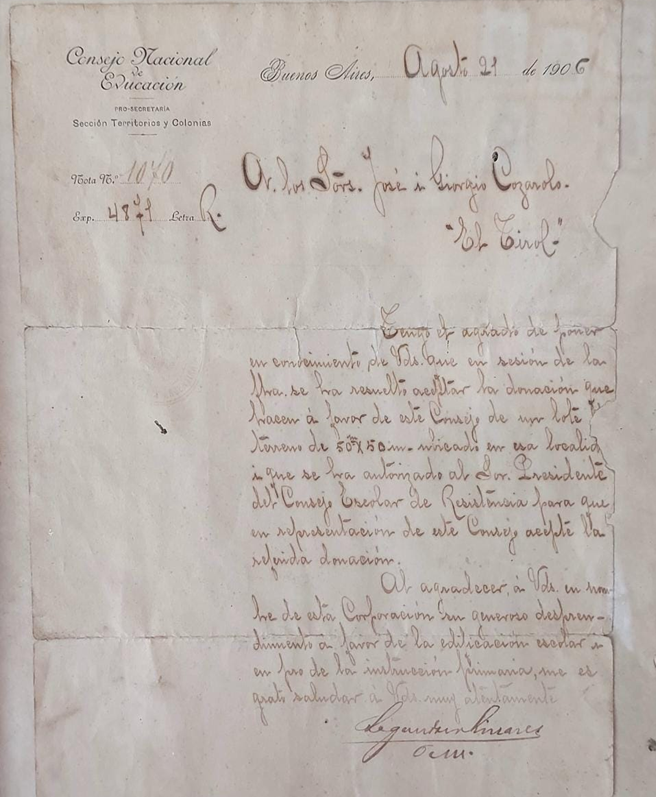 Consejo Nacional
de
Educación
PRO-SECRETARÍA
Sección Territorios y Colonias
Buenos Aires, Agosto 21 de 1906
Nota N.º 1070
Exp. 4871 Letra R.
A. los Sōrs. José i Giorgio Cozarolo.
"El Tirol"
Tengo el agrado de poner
en conocimiento de Vds. que en sesión de la
fha. se ha resuelto aceptar la donación que
hacen á favor de este Consejo de un lote
terreno de 50 X 50 m. ubicado en esa localid
i que se ha autorizado al Sor. Presidente
del Consejo Escolar de Resistensia para que
en representación de este Consejo acepte la
referida donación.
Al agradecer, á Vds. en nom-
bre de esta Corporación su generoso despren-
dimiento a favor de la edificación escolar i
en pro de la instrucción primaria, me es
grato saludar á Vds. muy atentamente